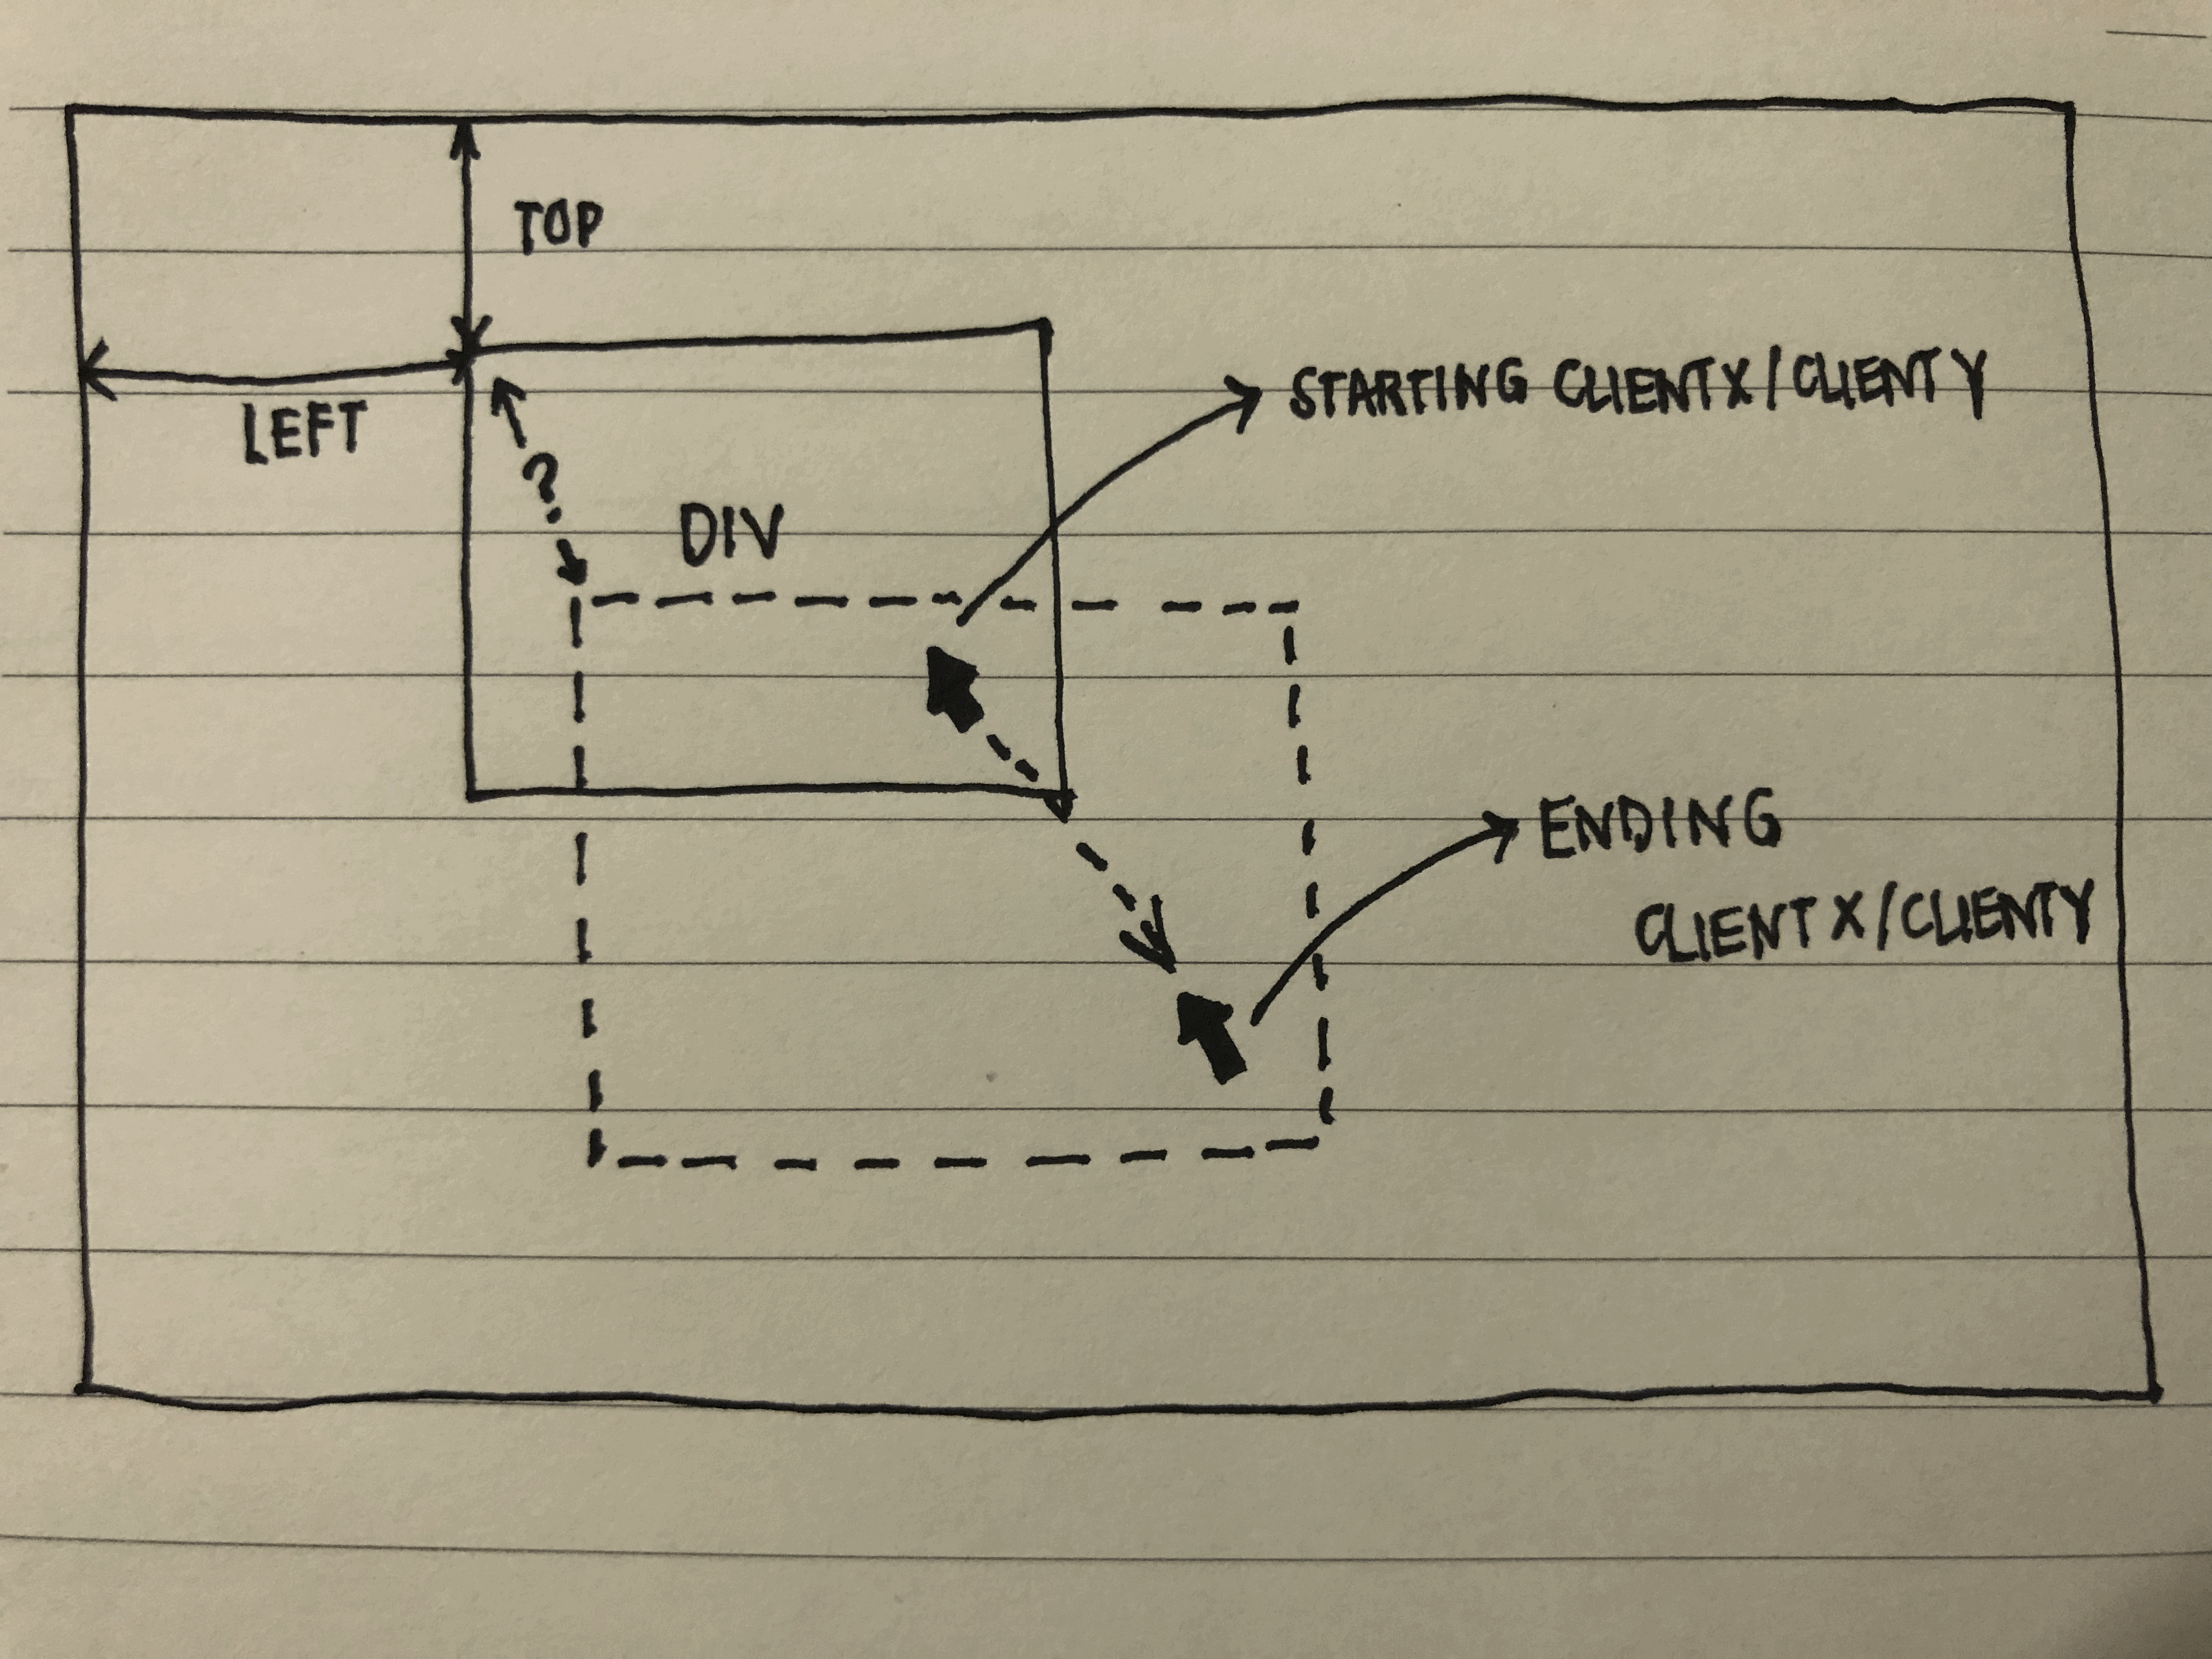 TOP
LEFT
STARTING CLIENTX/CLIENTY
?
DIV
ENDING
CLIENTX/CLIENTY